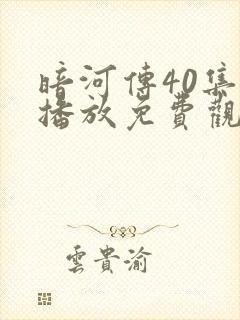 暗河傳40集
播放免費觀
雲貴渝